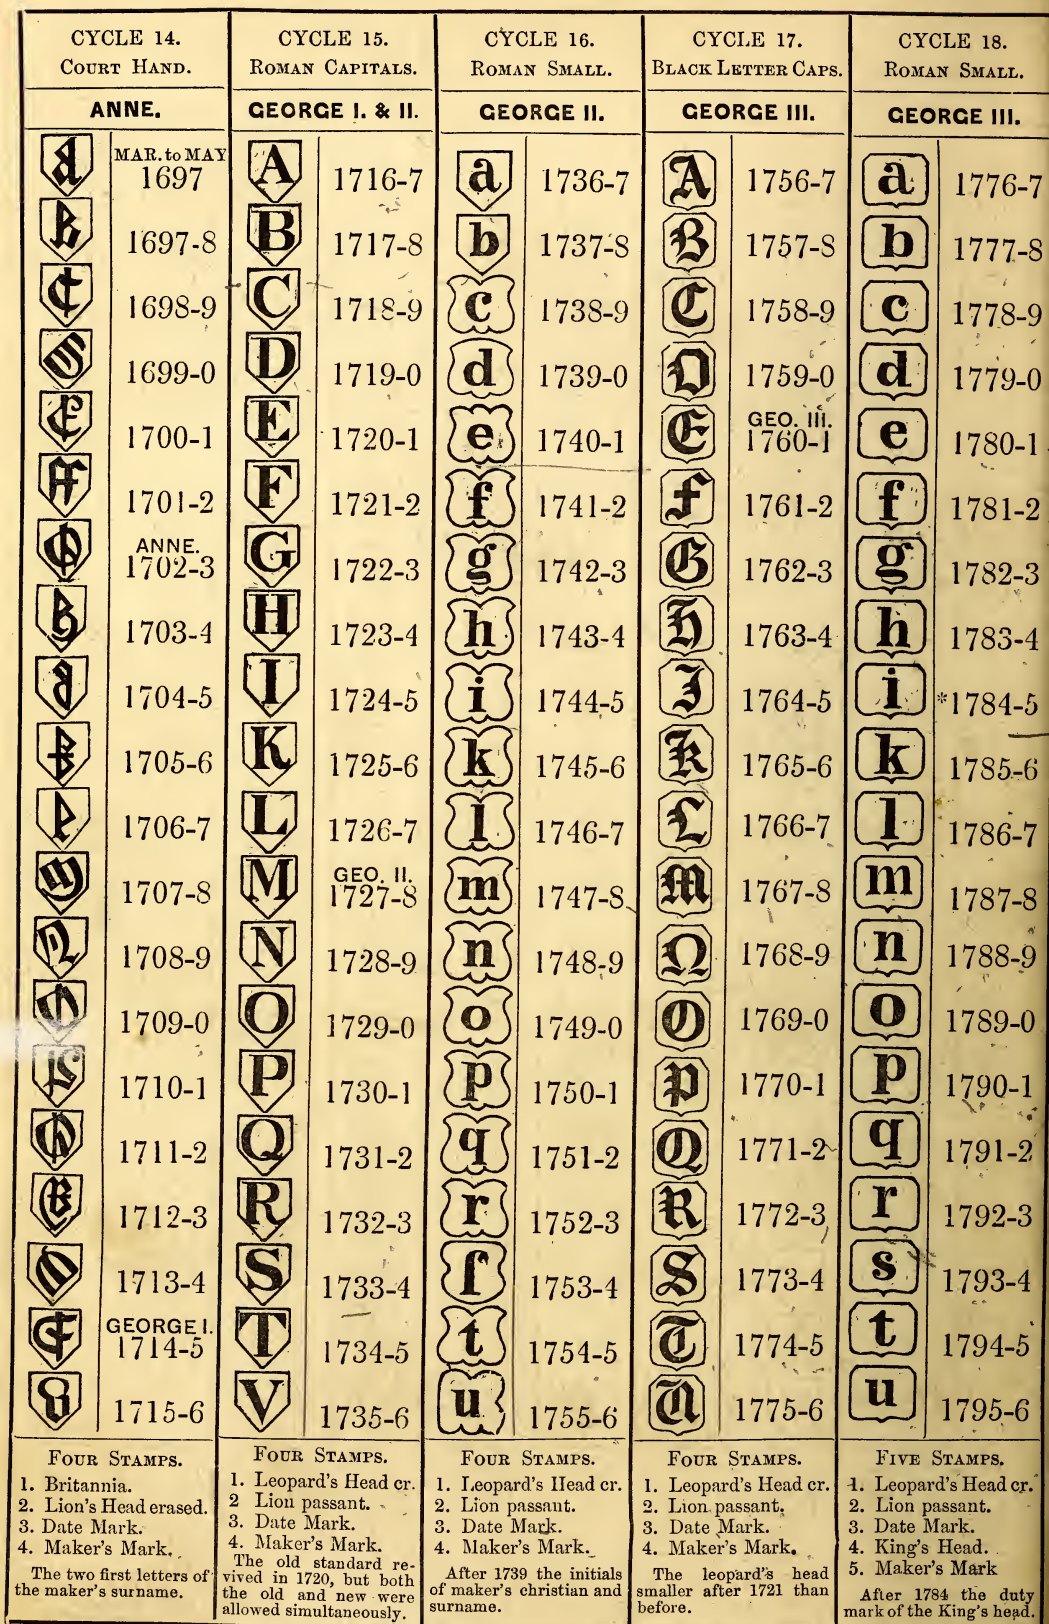 CYCLE 14.
COURT HAND.
ANNE.
MAR. to MAY
1697
1697-8
1698-9
1699-0
1700-1
1701-2
ANNE.
1702-3
1703-4
1704-5
1705-6
1706-7
1707-8
1708-9
1709-0
1710-1
1711-2
1712-3
1713-4
GEORGE I.
1714-5
1715-6
FOUR STAMPS.
1. Britannia.
2. Lion's Head erased.
3. Date Mark.
4. Maker's Mark.
The two first letters of
the maker's surname.
CYCLE 15.
ROMAN CAPITALS.
GEORGE I. & II.
A 1716-7
B 1717-8
C 1718-9
D 1719-0
E 1720-1
F 1721-2
G 1722-3
H 1723-4
I 1724-5
K 1725-6
L 1726-7
GEO. II.
M 1727-8
N 1728-9
O 1729-0
P 1730-1
Q 1731-2
R 1732-3
S 1733-4
T 1734-5
V 1735-6
FOUR STAMPS.
1. Leopard's Head cr.
2 Lion passant.
3. Date Mark.
4. Maker's Mark.
The old standard re-
vived in 1720, but both
the old and new were
allowed simultaneously.
CYCLE 16.
ROMAN SMALL.
GEORGE II.
a 1736-7
b 1737-8
c 1738-9
d 1739-0
e 1740-1
f 1741-2
g 1742-3
h 1743-4
i 1744-5
k 1745-6
l 1746-7
m 1747-8
n 1748-9
o 1749-0
p 1750-1
q 1751-2
r 1752-3
ſ 1753-4
t 1754-5
u 1755-6
FOUR STAMPS.
1. Leopard's Head cr.
2. Lion passant.
3. Date Mark.
4. Maker's Mark.
After 1739 the initials
of maker's christian and
surname.
CYCLE 17.
BLACK LETTER CAPS.
GEORGE III.
A 1756-7
B 1757-8
C 1758-9
D 1759-0
GEO. III.
E 1760-1
F 1761-2
G 1762-3
H 1763-4
I 1764-5
K 1765-6
L 1766-7
M 1767-8
N 1768-9
O 1769-0
P 1770-1
Q 1771-2
R 1772-3
S 1773-4
T 1774-5
U 1775-6
FOUR STAMPS.
1. Leopard's Head cr.
2. Lion passant.
3. Date Mark.
4. Maker's Mark.
The leopard's head
smaller after 1721 than
before.
CYCLE 18.
ROMAN SMALL.
GEORGE III.
a 1776-7
b 1777-8
c 1778-9
d 1779-0
e 1780-1
f 1781-2
g 1782-3
h 1783-4
i *1784-5
k 1785-6
l 1786-7
m 1787-8
n 1788-9
o 1789-0
p 1790-1
q 1791-2
r 1792-3
s 1793-4
t 1794-5
u 1795-6
FIVE STAMPS.
1. Leopard's Head cr.
2. Lion passant.
3. Date Mark.
4. King's Head.
5. Maker's Mark
After 1784 the duty
mark of the King's head.